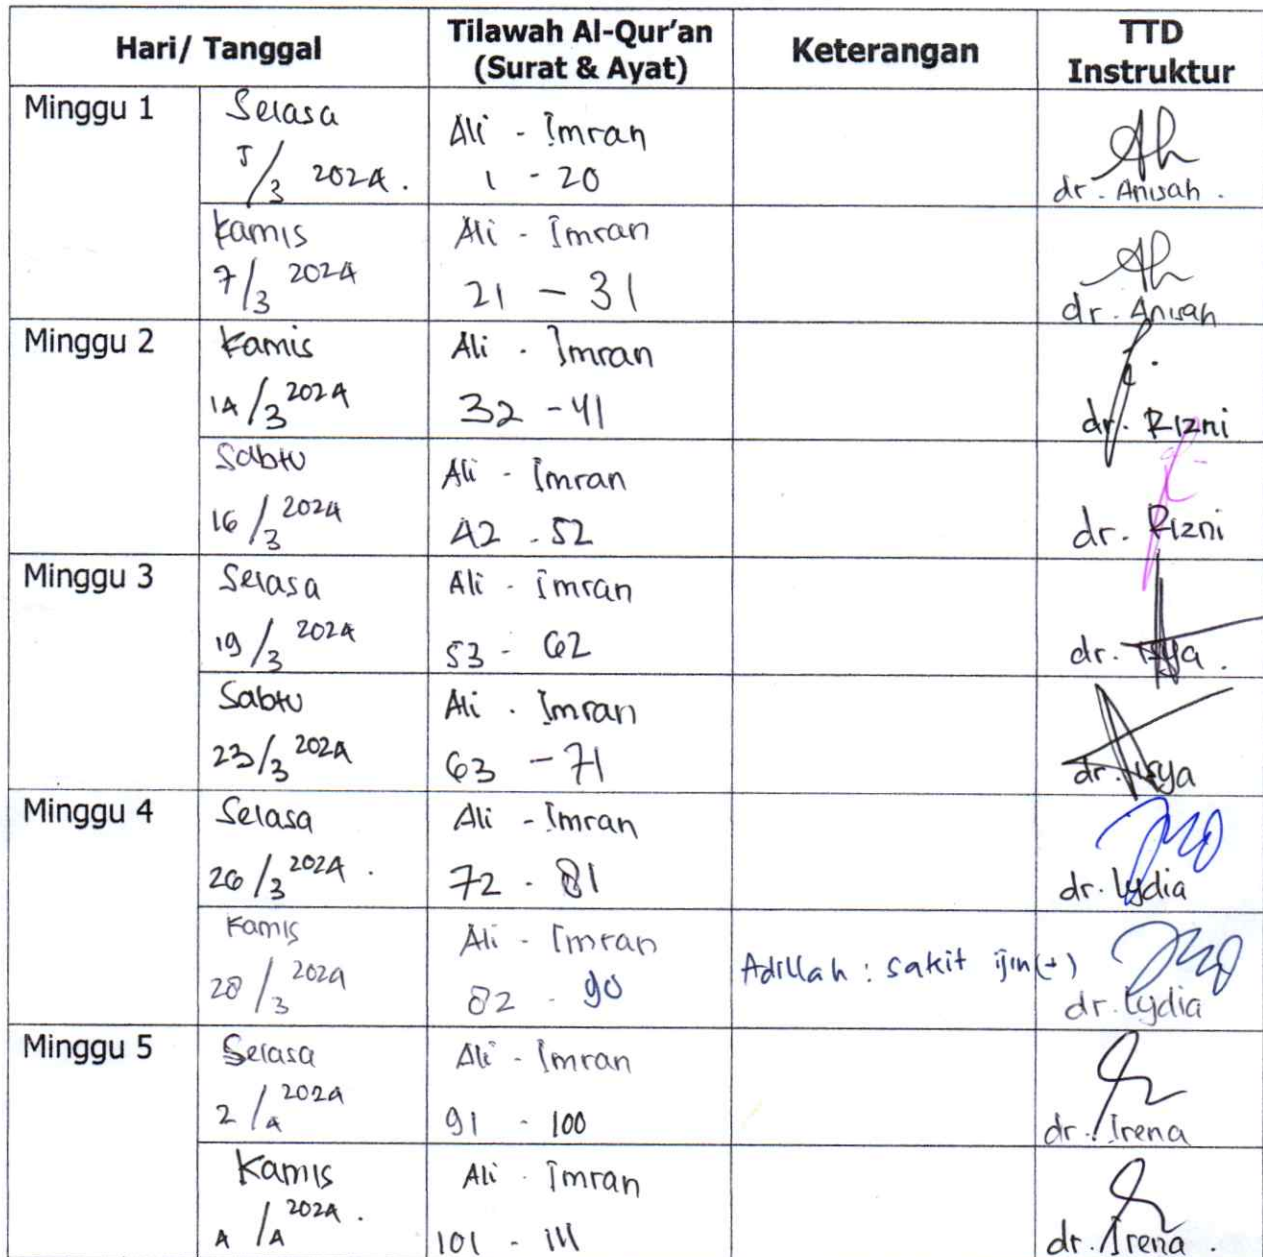 Hari/ Tanggal
Tilawah Al-Qur'an
(Surat & Ayat)
Keterangan
TTD
Instruktur
Minggu 1
Selasa
5/3 2024.
Ali - Imran
1 - 20
dr. Anisah.
Kamis
7/3 2024
Ali - Imran
21 - 31
dr. Anisah
Minggu 2
Kamis
14/3 2024
Ali - Imran
32 - 41
dr. Rizni
Sabtu
16/3 2024
Ali - Imran
42 - 52
dr. Rizni
Minggu 3
Selasa
19/3 2024
Ali - Imran
53 - 62
dr. Tsya.
Sabtu
23/3 2024
Ali - Imran
63 - 71
dr. Tsya
Minggu 4
Selasa
26/3 2024.
Ali - Imran
72 - 81
dr. Lydia
Kamis
28/3 2024
Ali - Imran
82 - 90
Adillah : sakit ijin (+)
dr. Lydia
Minggu 5
Selasa
2/4 2024
Ali - Imran
91 - 100
dr. Irena
Kamis
4/4 2024.
Ali - Imran
101 - 111
dr. Irena.